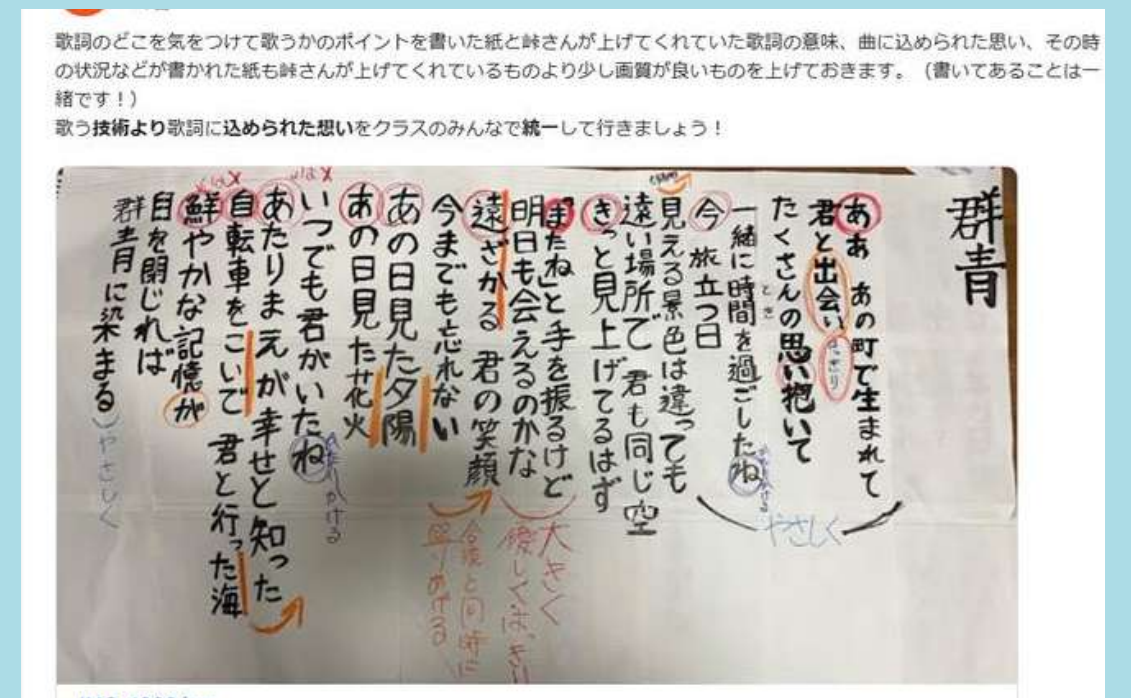 歌詞のどこを気をつけて歌うかのポイントを書いた紙と峠さんが上げてくれていた歌詞の意味、曲に込められた思い、その時
の状況などが書かれた紙も峠さんが上げてくれているものより少し画質が良いものを上げておきます。（書いてあることは一
緒です！）
歌う技術より歌詞に込められた想いをクラスのみんなで統一して行きましょう！
群青
ああ あの町で生まれて
君と出会い
はっきり
たくさんの思い抱いて
一緒に時間を過ごしたね
とき
やさしく
今 旅立つ日
見える景色は違っても
遠い場所で 君も同じ空
きっと見上げてるはず
「またね」と手を振るけど
大きく
明日も会えるのかな
優しくはっきり
遠ざかる 君の笑顔
今までも忘れない
あの日見た夕陽
あの日見た花火
いつでも君がいたね
あたりまえが幸せと知った
自転車をこいで 君と行った海
鮮やかな記憶が
目を閉じれば
群青に染まる
やさしく